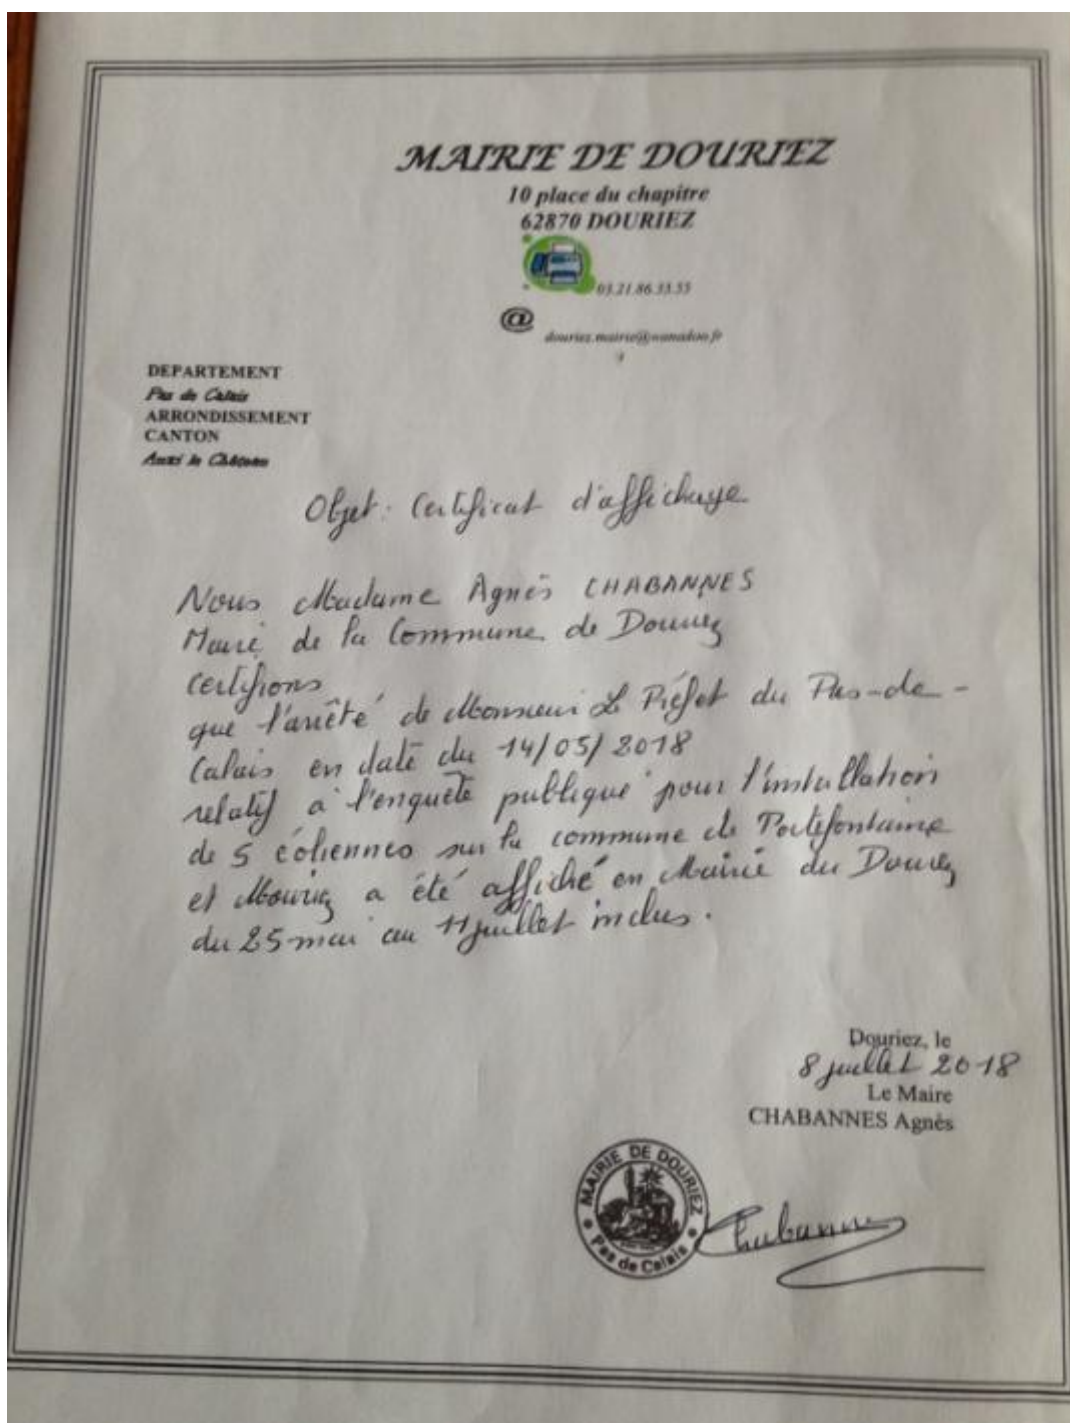 MAIRIE DE DOURIEZ
10 place du chapitre
62870 DOURIEZ
03.21.86.33.55
@
douriez.mairie@wanadoo.fr
DEPARTEMENT
Pas de Calais
ARRONDISSEMENT
CANTON
Auxi le Château
Objet : Certificat d'affichage
Nous Madame Agnès CHABANNES
Maire de la Commune de Douriez
Certifions
que l'arrêté de Monsieur Le Préfet du Pas-de-
Calais en date du 14/05/2018
relatif à l'enquête publique pour l'installation
de 5 éoliennes sur la commune de Tortefontaine
et Mouriez a été affiché en Mairie du Douriez
du 25 mai au 11 juillet inclus.
Douriez, le
8 juillet 2018
Le Maire
CHABANNES Agnès
MAIRIE DE DOURIEZ
Pas de Calais
Chabannes